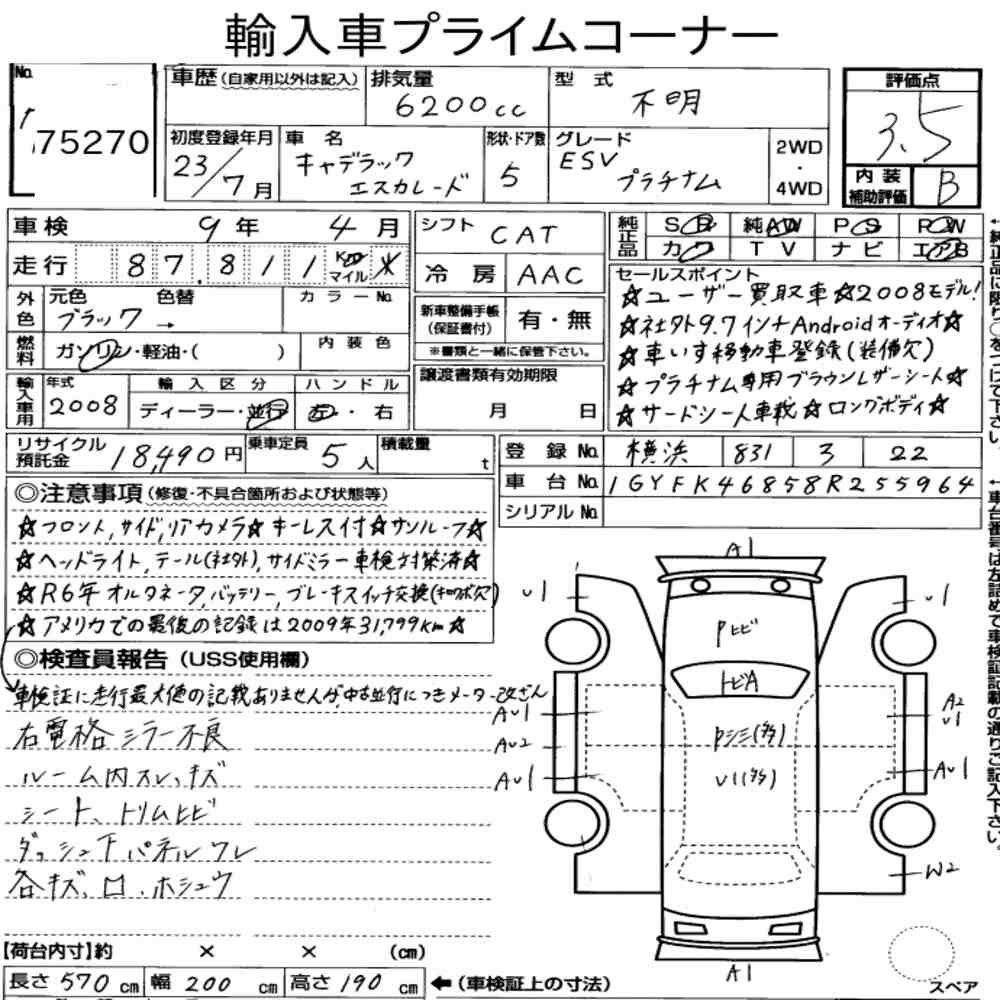 輸入車プライムコーナー
No. 75270
車歴(自家用以外は記入)
排気量 6200cc
型式 不明
評価点 3.5
初度登録年月 23/7月
車名 キャデラック エスカレード
形状・ドア数 5
グレード ESV プラチナム
2WD・4WD
内装補助評価 B
車検 9年 4月
走行 87,811 Km マイル
シフト CAT
冷房 AAC
純正品 SR 純AW PS PW
カワ TV ナビ エアB
外色 元色 ブラック → 色替
カラーNo.
燃料 ガソリン・軽油・( )
内装色
新車整備手帳(保証書付) 有・無
※書類と一緒に保管下さい。
セールスポイント
☆ユーザー買取車☆2008モデル!
☆社外9.7インチAndroidオーディオ☆
☆車いす移動車登録(装備欠)
☆プラチナム専用ブラウンレザーシート☆
☆サードシート車載☆ロングボディ☆
輸入車用 年式 2008
輸入区分 ディーラー・並行
ハンドル 左・右
譲渡書類有効期限
月 日
リサイクル預託金 18,490円
乗車定員 5人
積載量 t
登録No. 横浜 831 3 22
車台No. 1GYFK46858R255964
シリアルNo.
◎注意事項(修復・不具合箇所および状態等)
☆フロント,サイド,リアカメラ☆キーレス付☆サンルーフ☆
☆ヘッドライト,テール(社外),サイドミラー車検対策済☆
☆R6年オルタネータ,バッテリー,ブレーキスイッチ交換(キロク欠)
☆アメリカでの最後の記録は2009年31,799km☆
◎検査員報告(USS使用欄)
車検証に走行最大値の記載ありませんが,中古並行につきメーター改ざん
右電格ミラー不良
ルーム内スレ,キズ
シート、トリムヒビ
ダッシュ下パネルワレ
各キズ、凹、ホシュウ
A1
U1
U1
Pヒビ
トビA
Pシミ(多)
U1(多)
AU1
AU2
AU1
A2
U1
AU1
W2
A1
スペア
【荷台内寸】約 × × (cm)
長さ 570 cm 幅 200 cm 高さ 190 cm ←(車検証上の寸法)